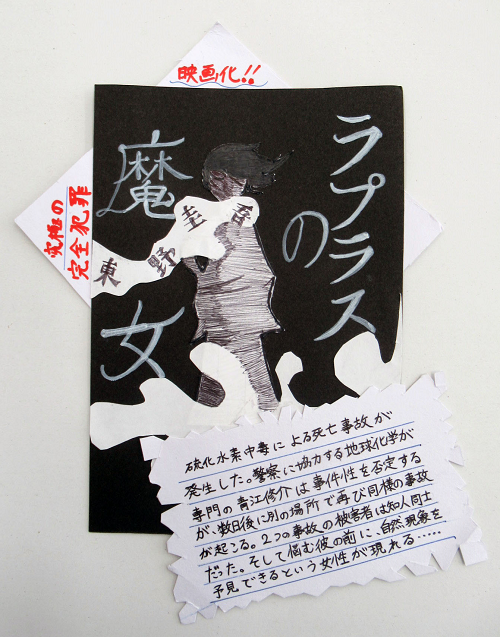 映画化!!
究極の
完全犯罪
ラプラス
の
魔女
東野圭吾
硫化水素中毒による死亡事故が
発生した。警察に協力する地球化学が
専門の青江修介は事件性を否定する
が、数日後に別の場所で再び同様の事故
が起こる。2つの事故の被害者は知人同士
だった。そして悩む彼の前に、自然現象を
予見できるという女性が現れる……